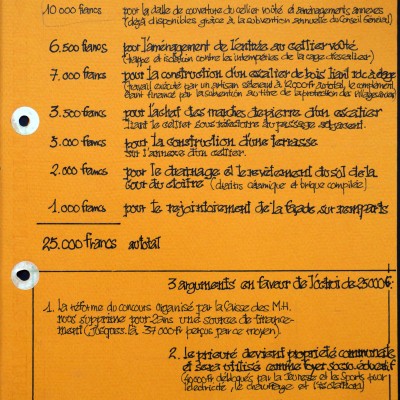 10 000 francs pour la dalle de couverture du cellier voûté et aménagements annexes
(déjà disponibles grâce à la subvention annuelle du Conseil Général)
6.500 francs pour l'aménagement de l'entrée au cellier voûté
(trappe et isolation contre les intempéries de la cage d'escalier)
7.000 francs pour la construction d'un escalier de bois
(travail exécuté par un artisan
étant financé par la subvention au titre de la protection des
3.500 francs pour l'achat des marches de pierre d'un escalier
liant le cellier sous réfectoire au passage adjacent.
5.000 francs pour la construction d'une terrasse
sur l'annexe d'un cellier.
2.000 francs pour le drainage et le revêtement du sol de la
cour du cloître (drains céramique et brique compilée)
1.000 francs pour le rejointoiement de la façade sur remparts
25.000 francs au total
3 arguments en faveur de l'octroi de 25000 fr.
1. La réforme du concours organisé par la Caisse des M.H.
nous supprime pour 2 ans une source de finance-
ment (jusques là 37 000 fr perçus par ce moyen).
2. le prieuré devient propriété communale
et sera utilisé comme foyer socio-éducatif
débloqués par la Jeunesse et les Sports pour
l'électricité, le chauffage et